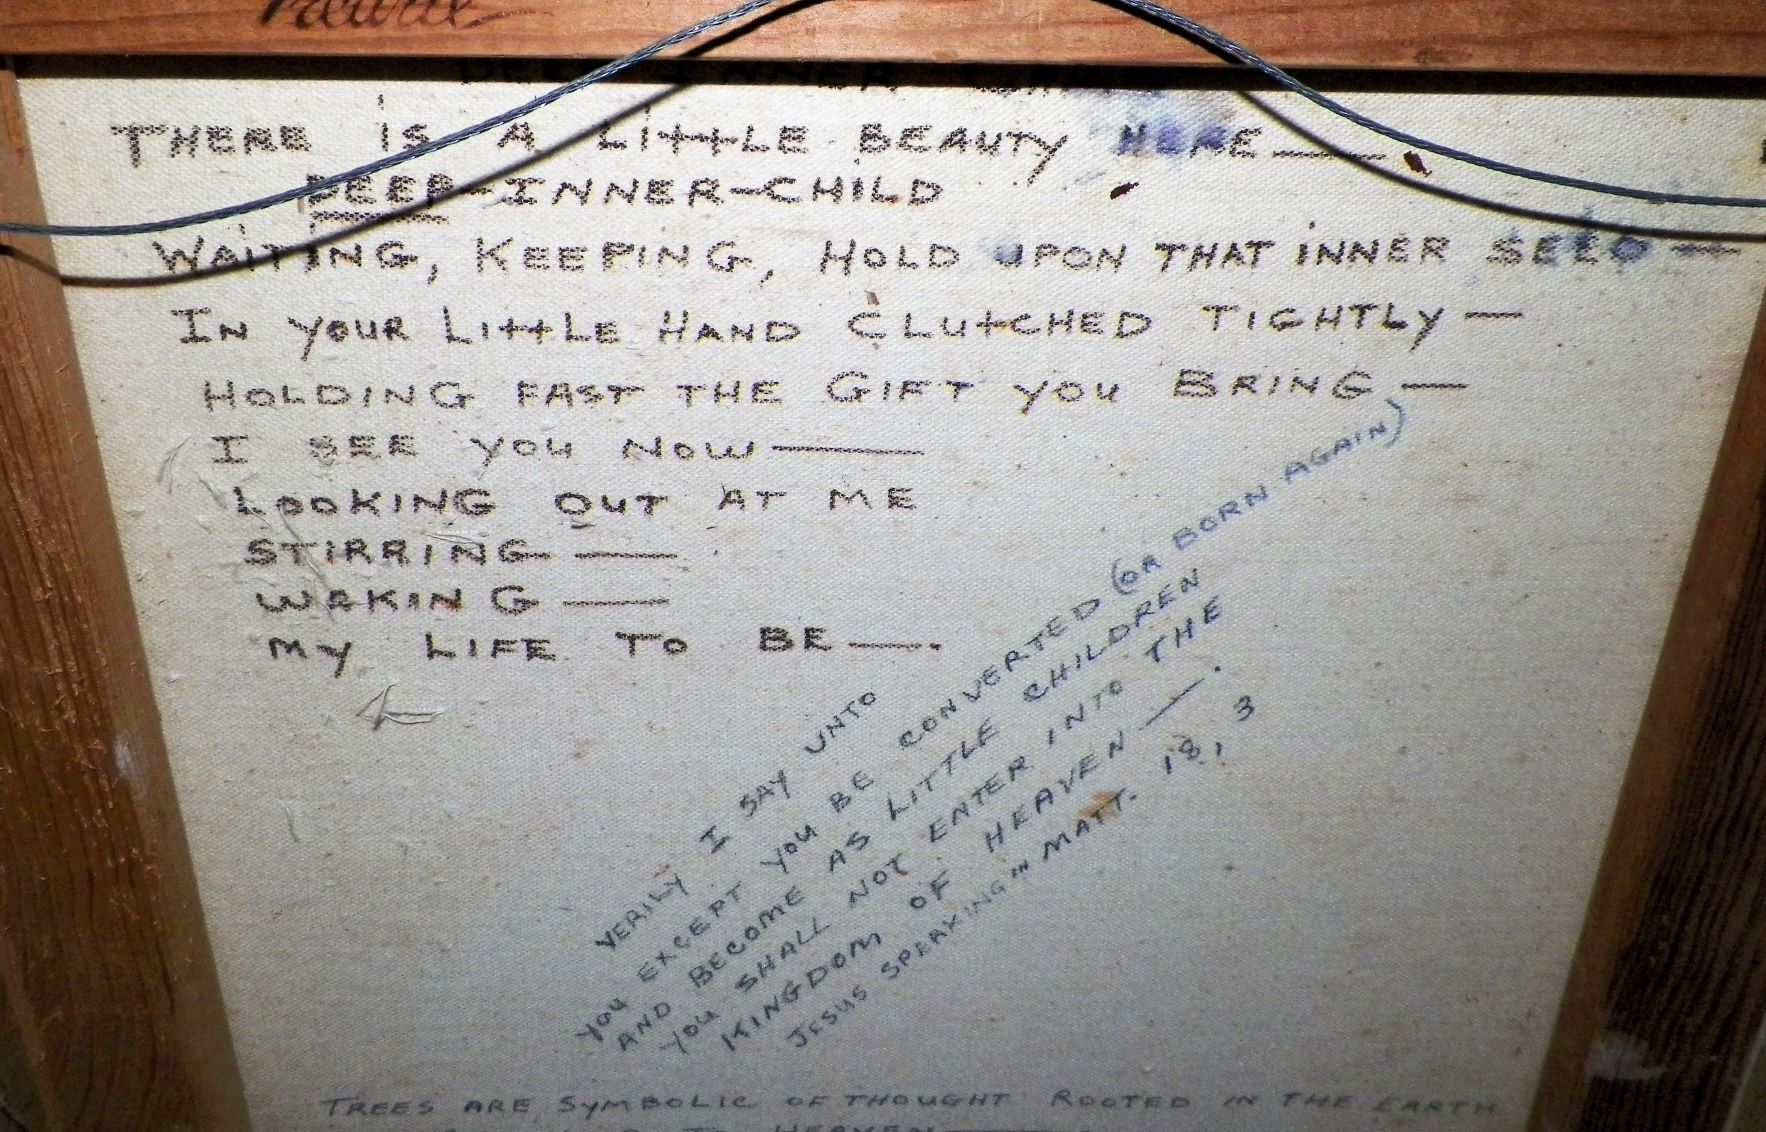 DEEP INNER
THERE IS A LITTLE BEAUTY HERE——
DEEP-INNER-CHILD
WAITING, KEEPING, HOLD UPON THAT INNER SEED—
IN YOUR LITTLE HAND CLUTCHED TIGHTLY—
HOLDING FAST THE GIFT YOU BRING—
I SEE YOU NOW——
LOOKING OUT AT ME
STIRRING——
WAKING——
MY LIFE TO BE——.
VERILY I SAY UNTO
YOU EXCEPT YOU BE CONVERTED (OR BORN AGAIN)
AND BECOME AS LITTLE CHILDREN
YOU SHALL NOT ENTER INTO THE
KINGDOM OF HEAVEN——.
JESUS SPEAKING" MATT. 18, 3
TREES ARE SYMBOLIC OF THOUGHT ROOTED IN THE EARTH
HEAVEN——